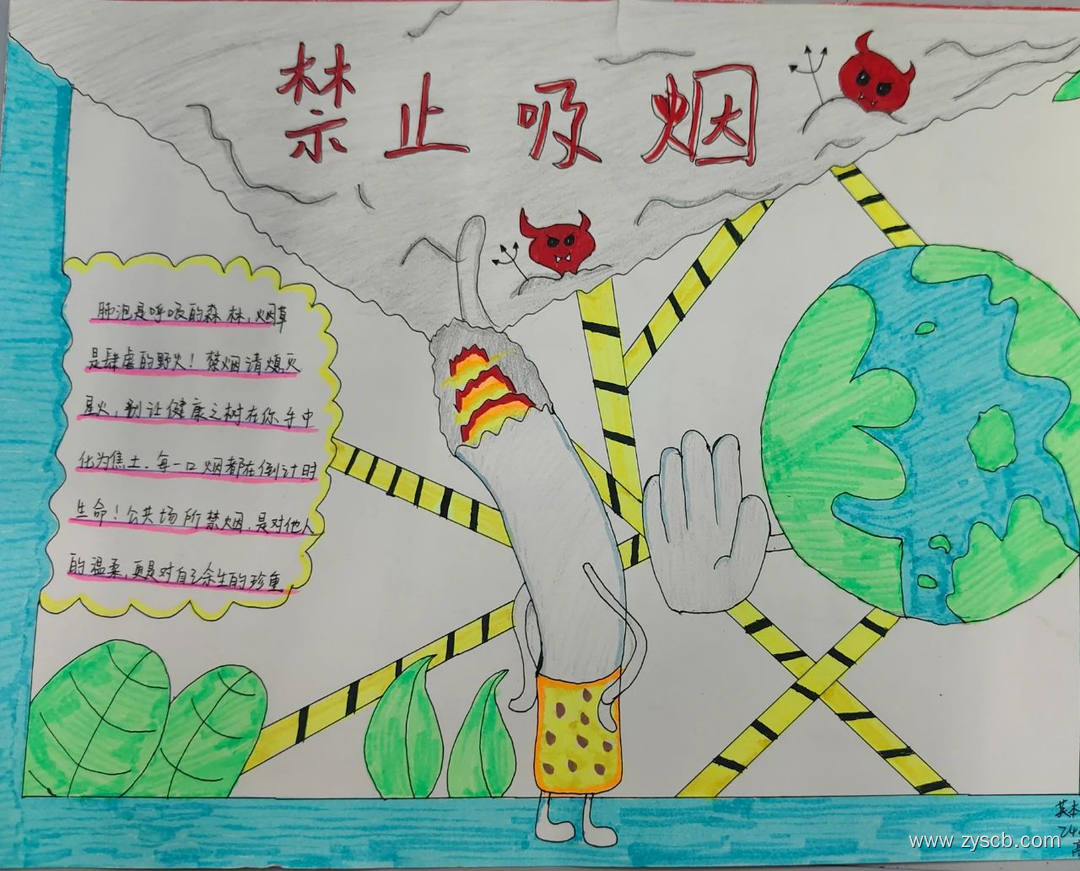 禁止吸烟
肺泡是呼吸的森林,烟草
是肆虐的野火!禁烟请熄灭
星火,别让健康之树在你手中
化为焦土.每一口烟都在倒计时
生命!公共场所禁烟,是对他人
的温柔,更是对自己余生的珍重
www.zyscb.com